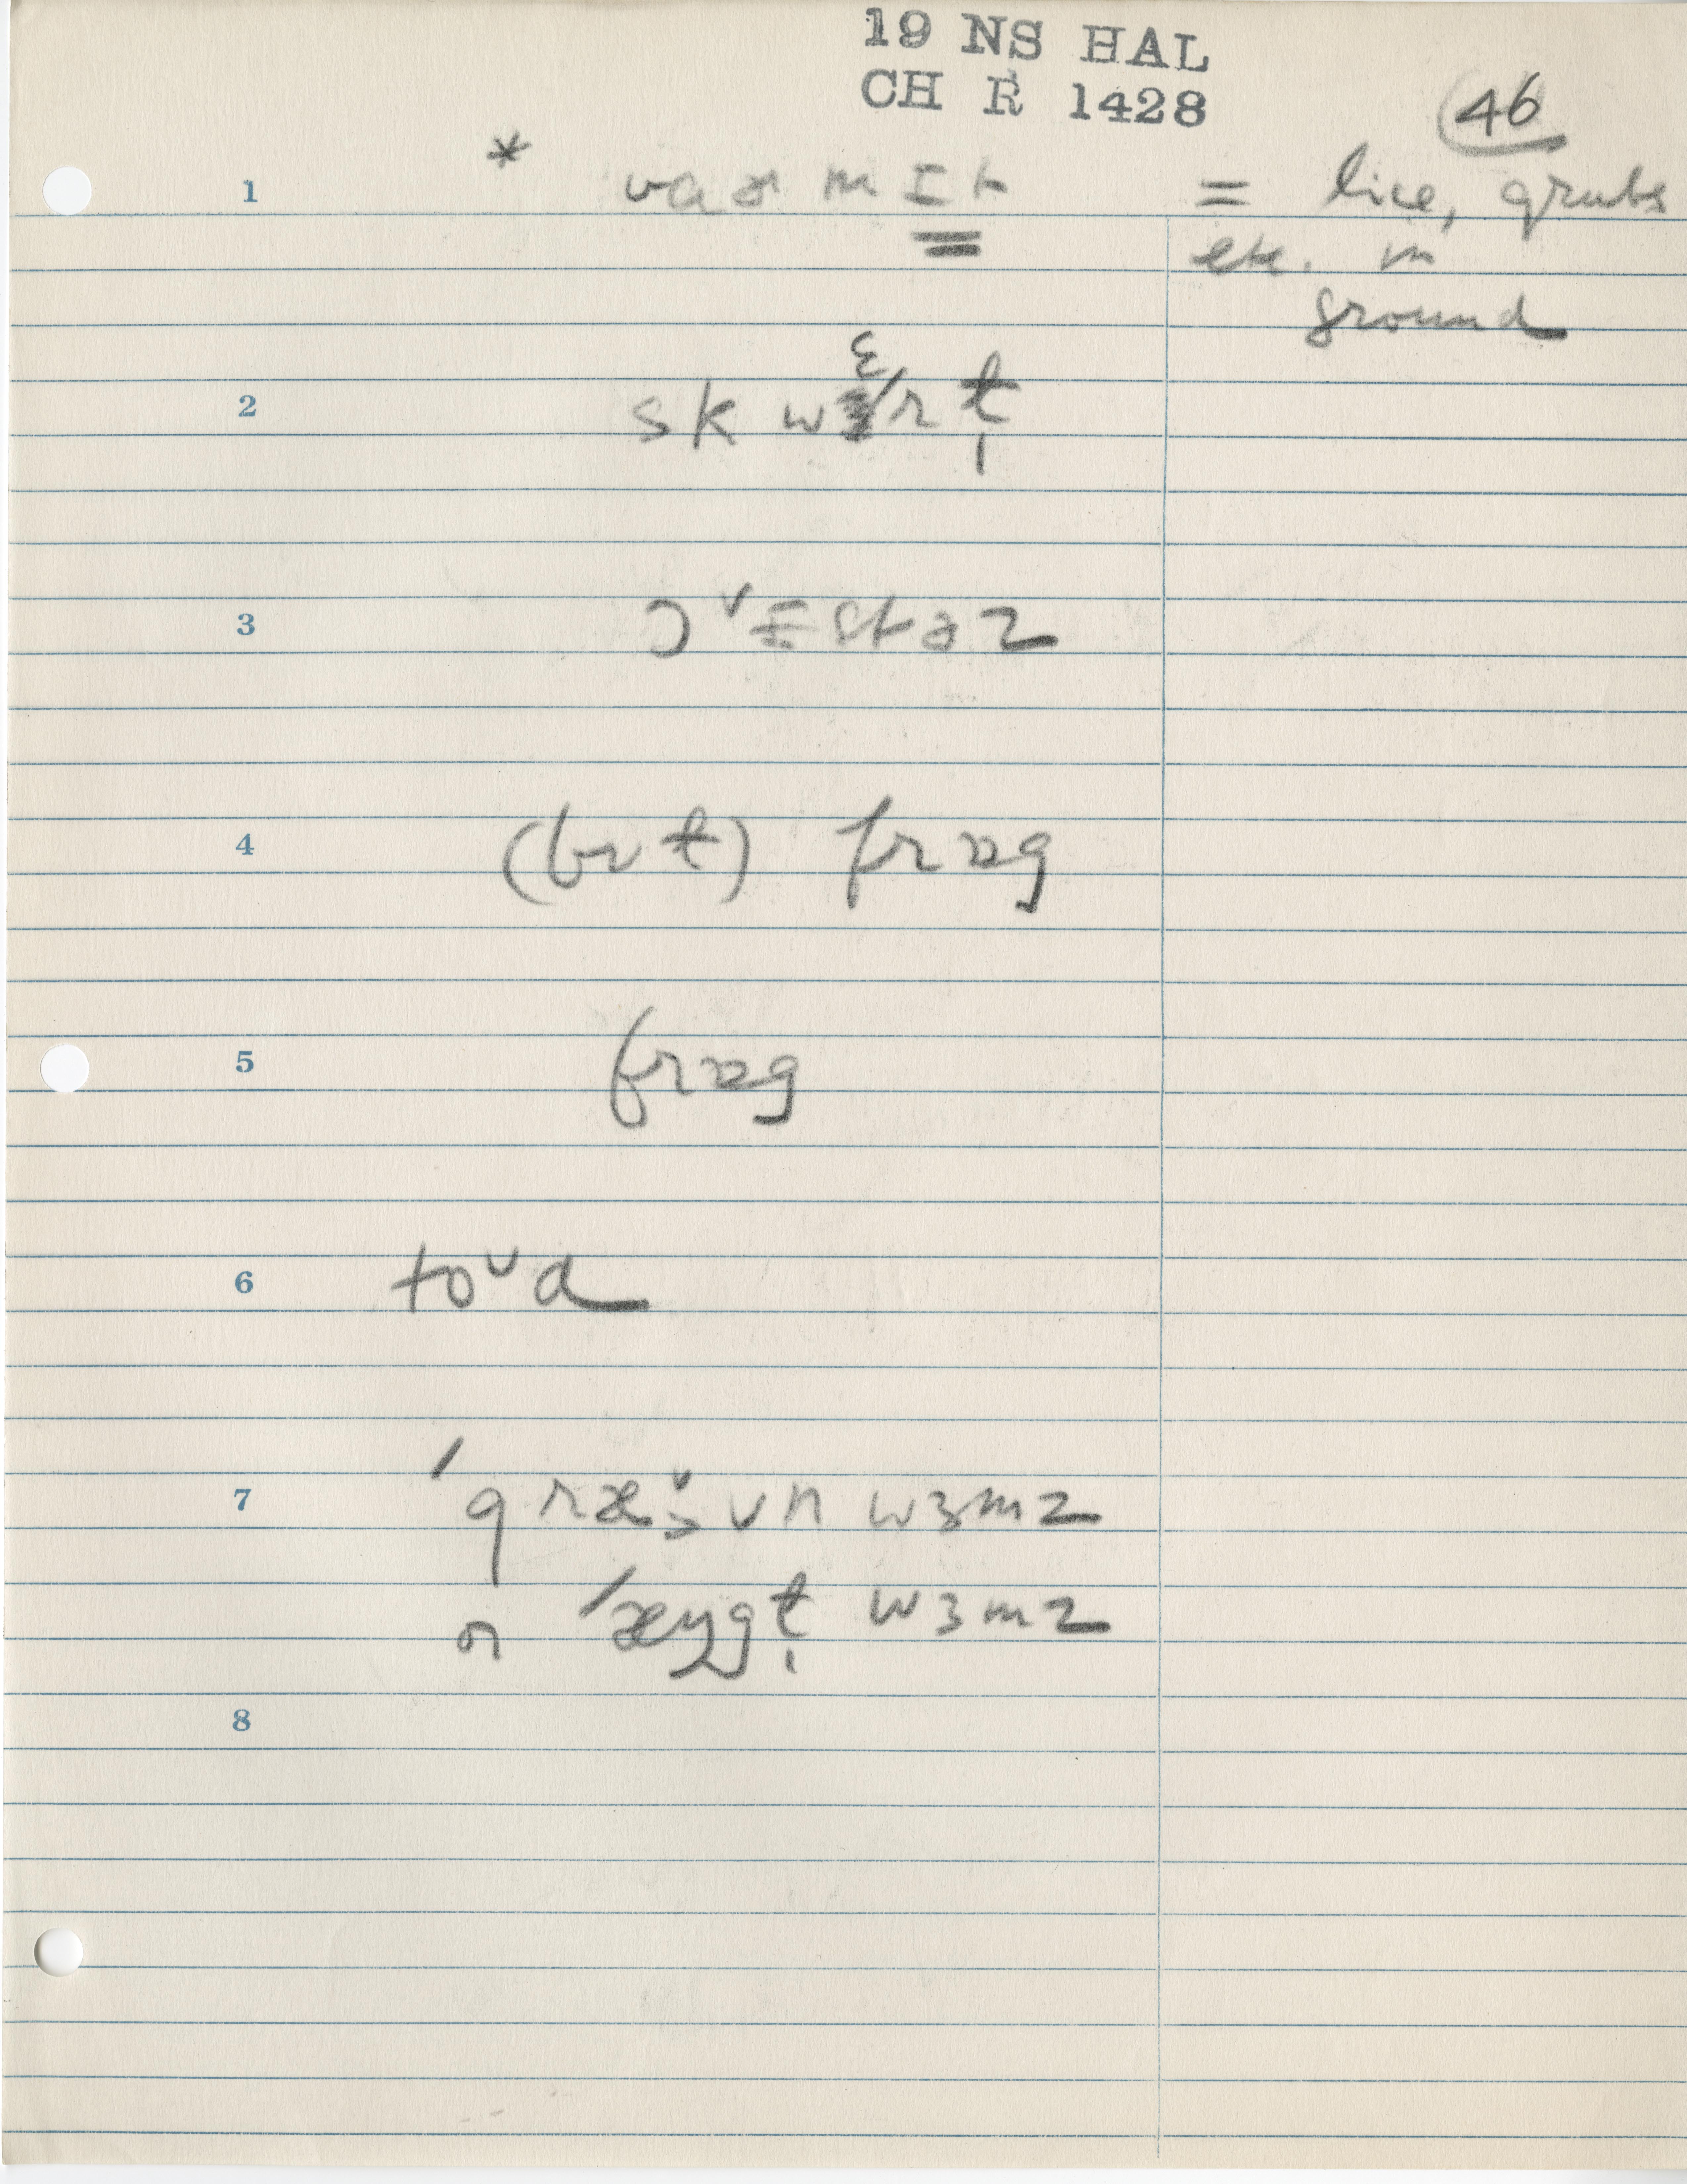 19 NS HAL
CH R 1428
46
1 * vaɚmɪt = lice, grubs
etc. in
ground
2 skwɛrt̩
3 ɔɪstəz
4 (bʊt) frɒg
5 frɒg
6 toᴜd
7 ˈgræᵛːs ʌn wɜmz
or ˈæŋgt̩ wɜmz
8